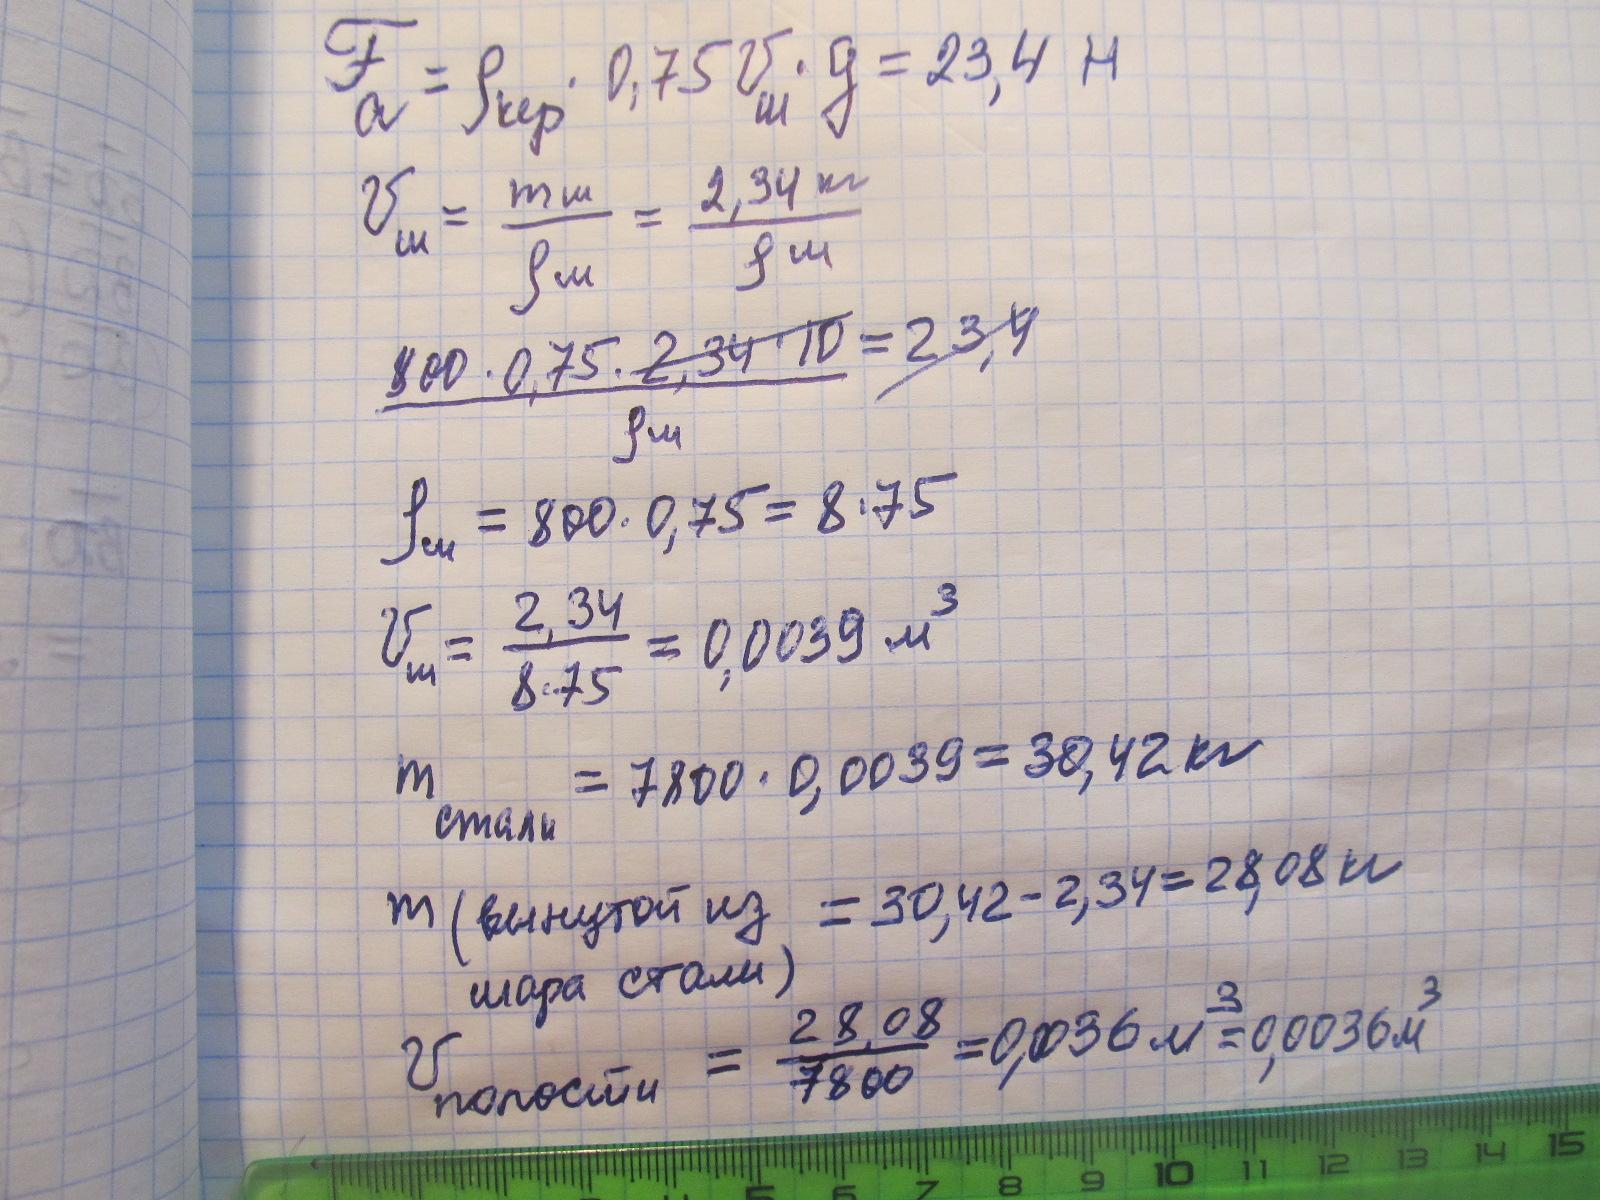 Fₐ = ρкер · 0,75 Vш · g = 23,4 Н
Vш = mш / ρш = 2,34 кг / ρш
800 · 0,75 · 2,34 · 10 / ρш = 23,4
ρш = 800 · 0,75 = 8 · 75
Vш = 2,34 / 8·75 = 0,0039 м³
m стали = 7800 · 0,0039 = 30,42 кг
m (вынутой из шара стали) = 30,42 - 2,34 = 28,08 кг
V полости = 28,08 / 7800 = 0,0036 м³ = 0,0036 м³
5 6 7 8 9 10 11 12 13 14 15